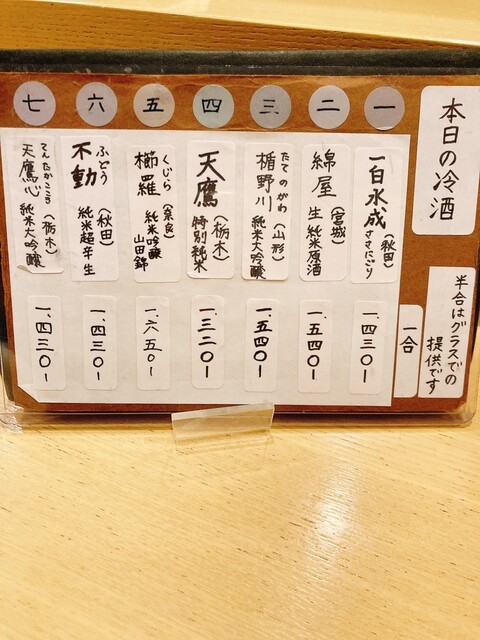 本日の冷酒
半合はグラスでの
提供です
一合
一
一白水成（秋田）
ささにごり
一、四三〇ー
二
綿屋（宮城）
生 純米原酒
一、五四〇ー
三
たてのがわ
楯野川（山形）
純米大吟醸
一、五四〇ー
四
天鷹（栃木）
特別純米
一、三二〇ー
五
くじら
櫛羅（奈良）
純米吟醸
山田錦
一、六五〇ー
六
ふどう
不動（秋田）
純米超辛生
一、四三〇ー
七
てんたかこころ
天鷹心（栃木）
純米大吟醸
一、四三〇ー